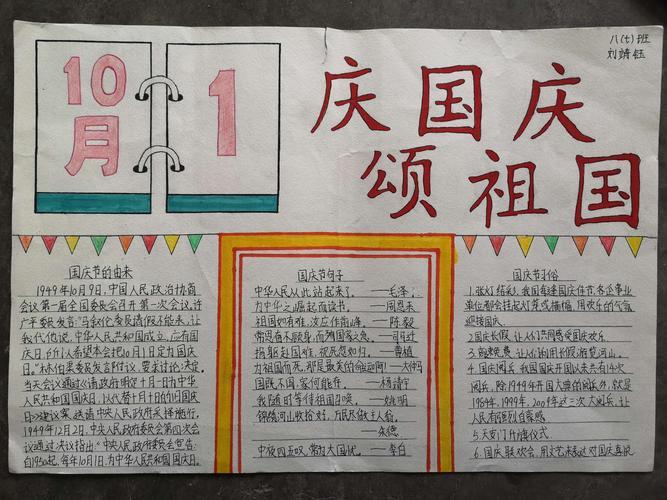 八(七)班
刘靖钰
10月
1
庆国庆
颂祖国
国庆节的由来
1949年10月9日,中国人民政治协商
会议第一届全国委员会召开第一次会议。许
广平委员发言:"马叙伦委员请假不能来,让
我代他说,中华人民共和国成立,应有国
庆日,所以希望本会把10月1日定为国庆
日。"林伯渠委员发言附议,要求讨论,决定
当天会议通过《请政府明定十月一日为中华
人民共和国国庆日,以代替十月十日的旧国庆
日》建议案,送请中央人民政府采择施行。
1949年12月2日,中央人民政府委员会第四次会
议通过决议指出:"中央人民政府委员会宣告:
自1950起,每年10月1日,为中华人民共和国国庆日。
国庆节句子
中华人民从此站起来了。——毛泽
为中华之崛起而读书。——周恩来
祖国如有难,汝应作前锋。——陈毅
常思奋不顾身,而殉国家之急。——司马迁
捐躯赴国难,视死忽如归。——曹植
为祖国而死,那是最美的命运啊!——大仲马
国既不国,家何能存。——杨靖宇
我随时等待祖国召唤。——姚明
锦绣河山收拾好,万民尽做主人翁。
——朱德
中夜四五叹,常为大国忧。——李白
国庆节习俗
1.张灯结彩,我国每逢国庆佳节,各企事业
单位都会挂起灯笼或横幅,用欢乐的气氛
迎接国庆.
2.国庆长假,让人们共同感受国庆欢乐.
3.高速免费,让人们利用长假,游览河山.
4.国庆阅兵,我国国庆开国以来共有14次
阅兵,除1949年开国大典的阅兵外,就是
1984年,1999年,2009年这三次大阅兵,让
人民有强烈自豪感.
5.天安门升旗仪式.
6.国庆联欢会,用文艺来表达对国庆喜悦